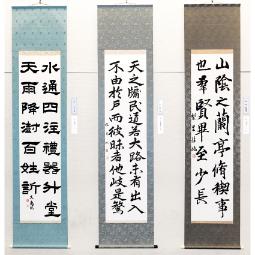 山陰之蘭亭脩禊事
也羣賢畢至少長
天之牖民道若大路未有出入
不由於戶而彼昧者他岐是騖
水通四注禮器升堂
天雨降澍百姓訢